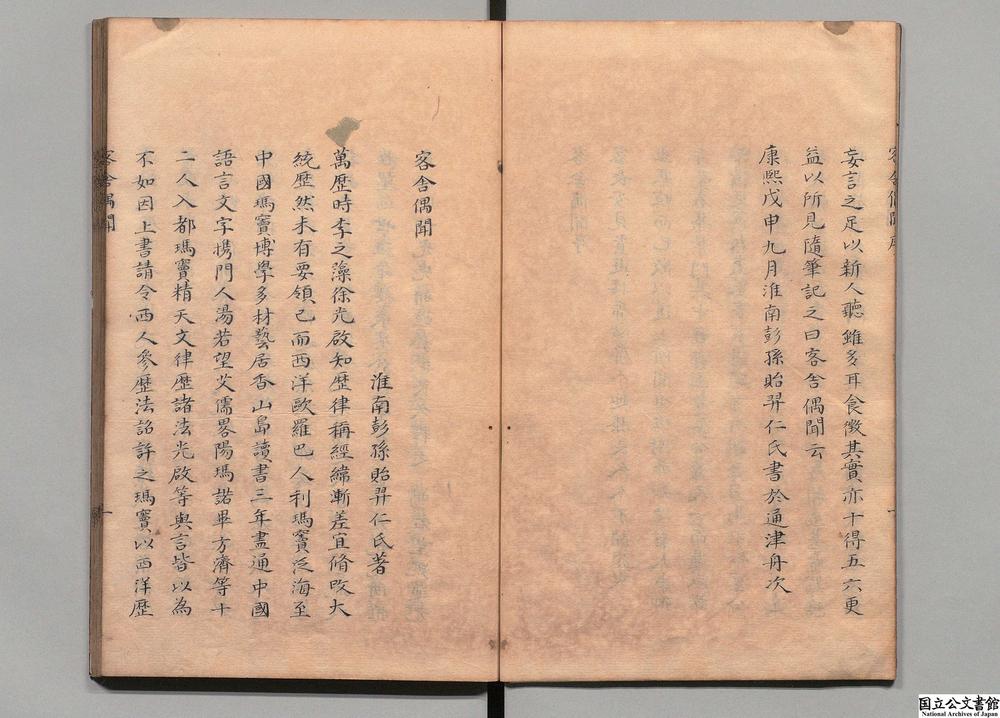 客舍偶聞序
一
妄言之足以新人聽雖多耳食徵其實亦十得五六更
益以所見隨筆記之曰客舍偶聞云
康熙戊申九月淮南彭孫貽羿仁氏書於通津舟次
客舍偶聞
淮南彭孫貽羿仁氏著
萬歷時李之藻徐光啟知歷律稱經緯漸差宜脩改大
統歷然未有要領已而西洋歐羅巴人利瑪竇泛海至
中國瑪竇博學多材藝居香山島讀書三年盡通中國
語言文字携門人湯若望艾儒畧陽瑪諾畢方濟等十
二人入都瑪竇精天文律歷諸法光啟等與言皆以為
不如因上書請令西人參歷法詔許之瑪竇以西洋歷
客舍偶聞
一
国立公文書館
National Archives of Japan